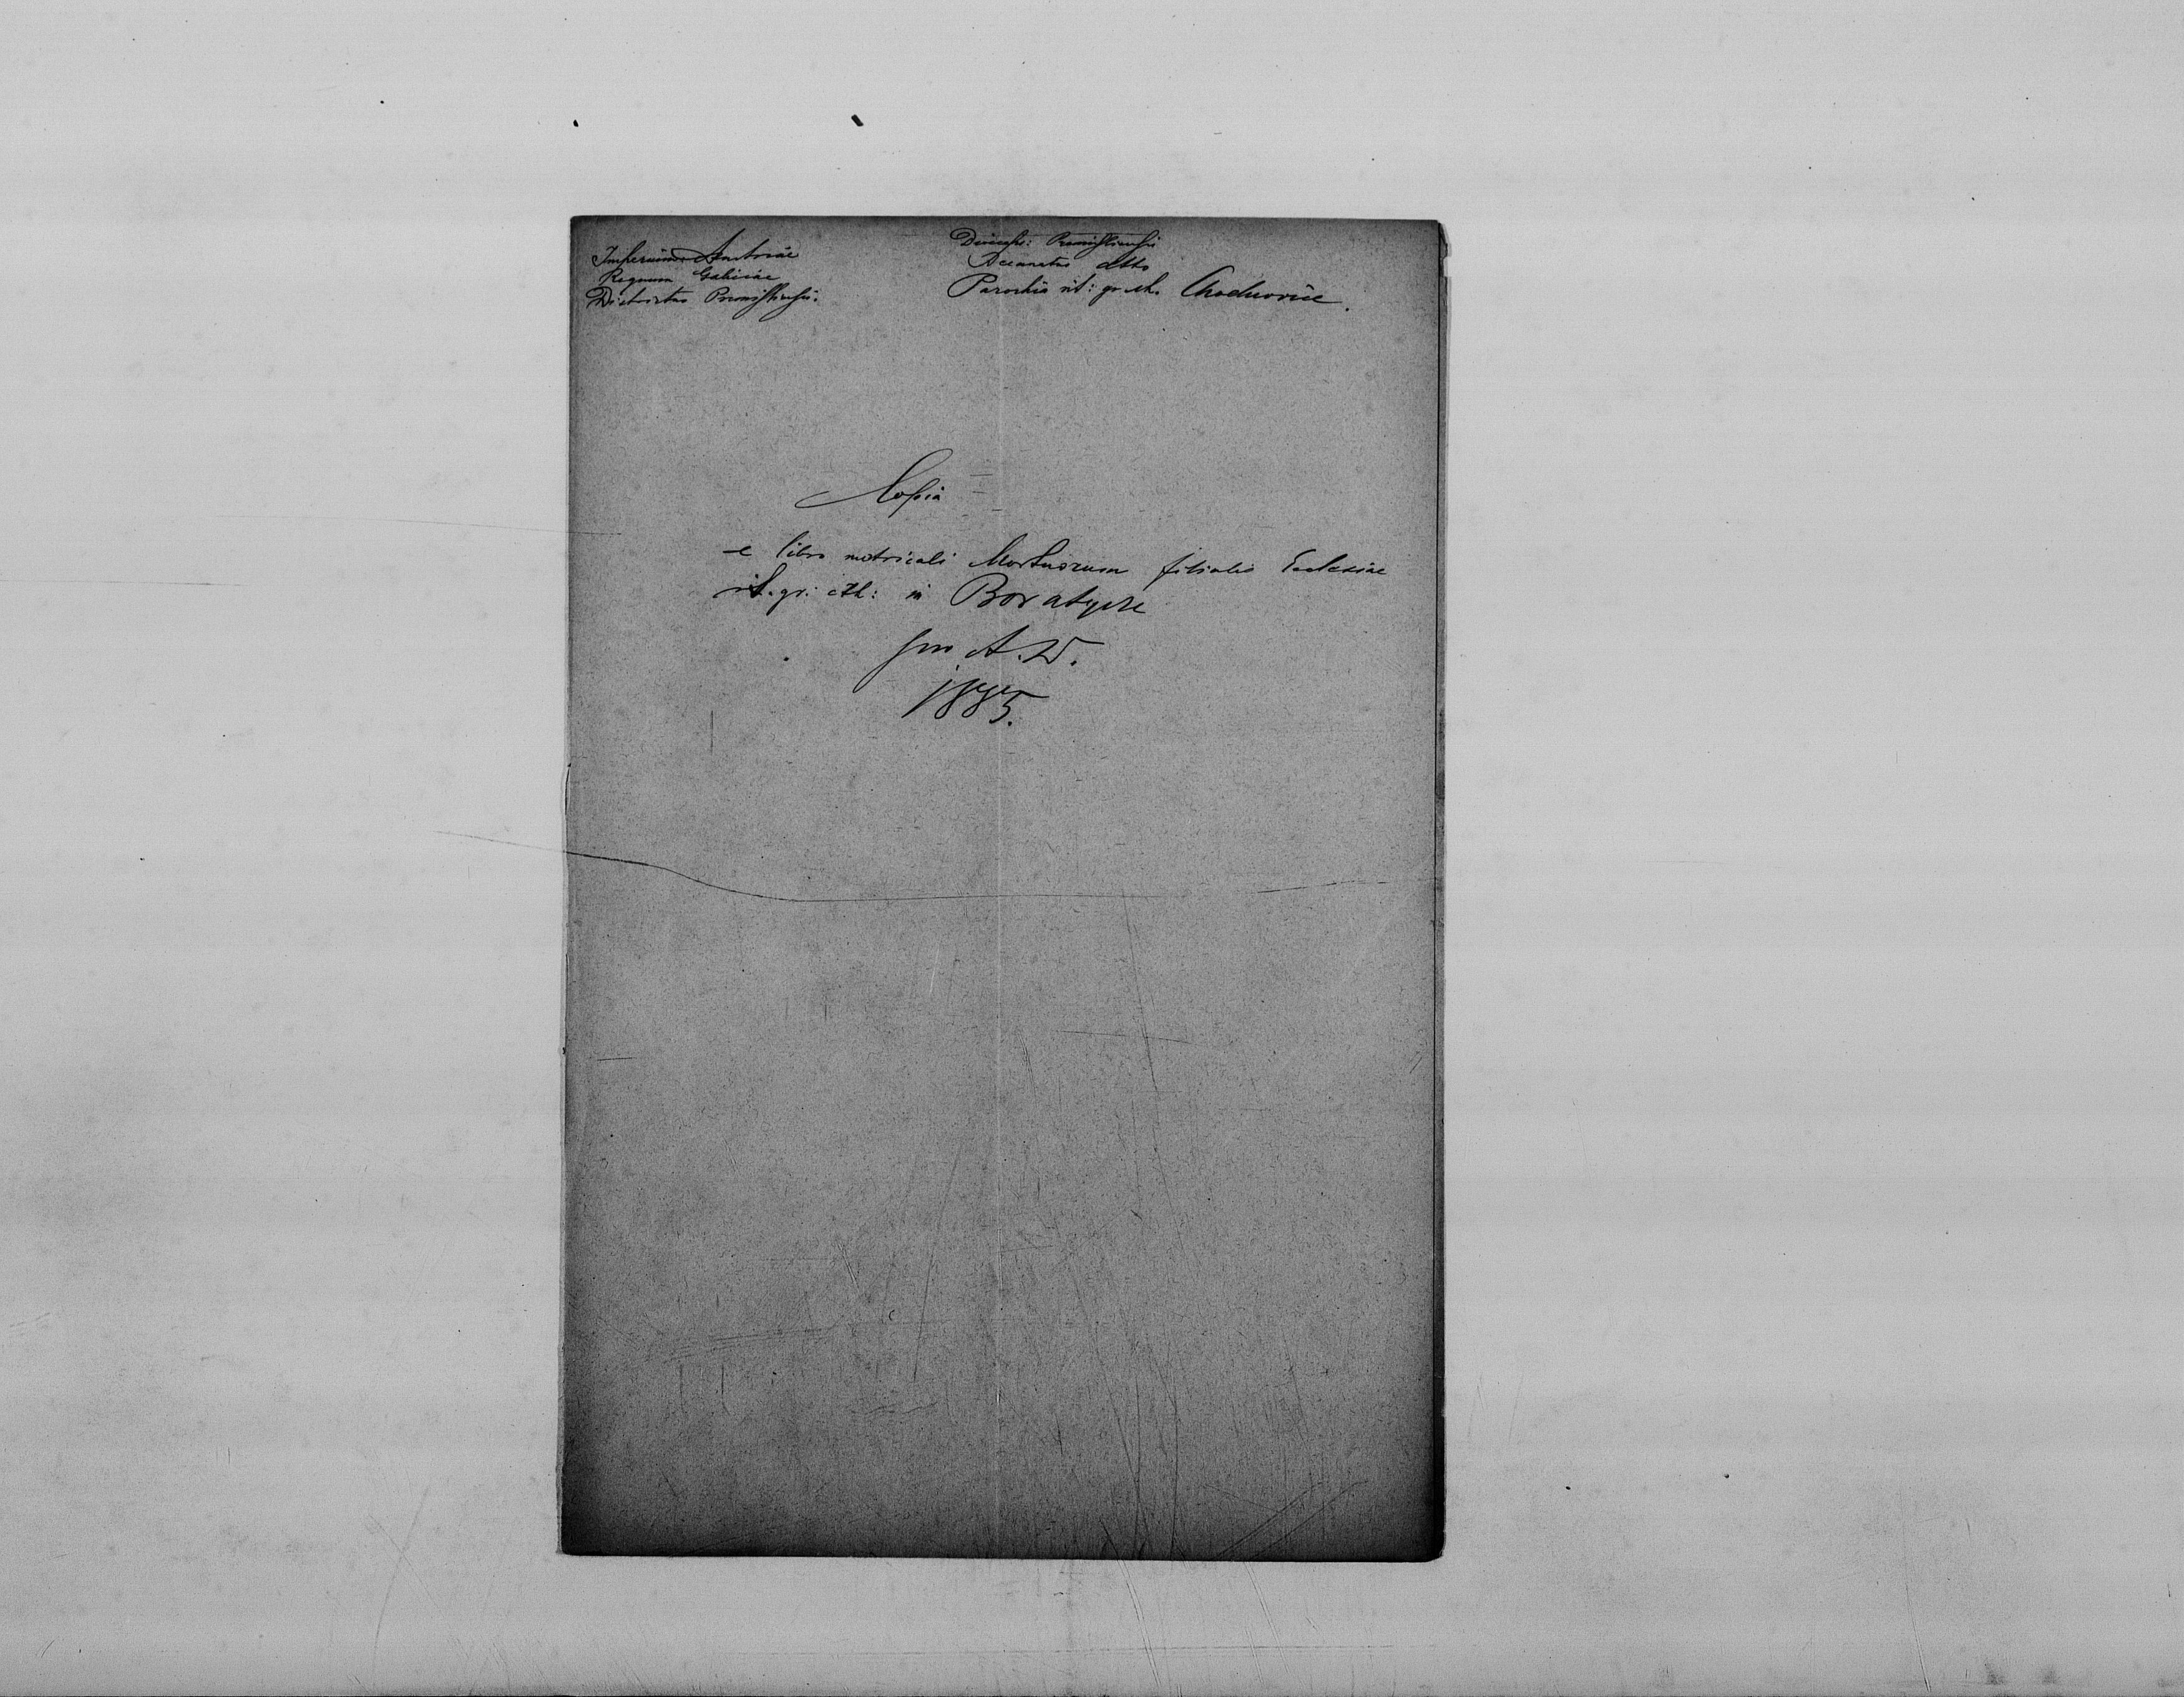 Imperium Austriae
Regnum Galiciae
Districtus Premisliensis.
Diecesis: Premisliensis
Decanatus dtto
Parochia rit: gr. cth. Chodnovice.
Copia
e libro metricali Mortuorum filialis Ecclesiae
rit. gr: cth: in Boratycze
pro A. D.
1885.